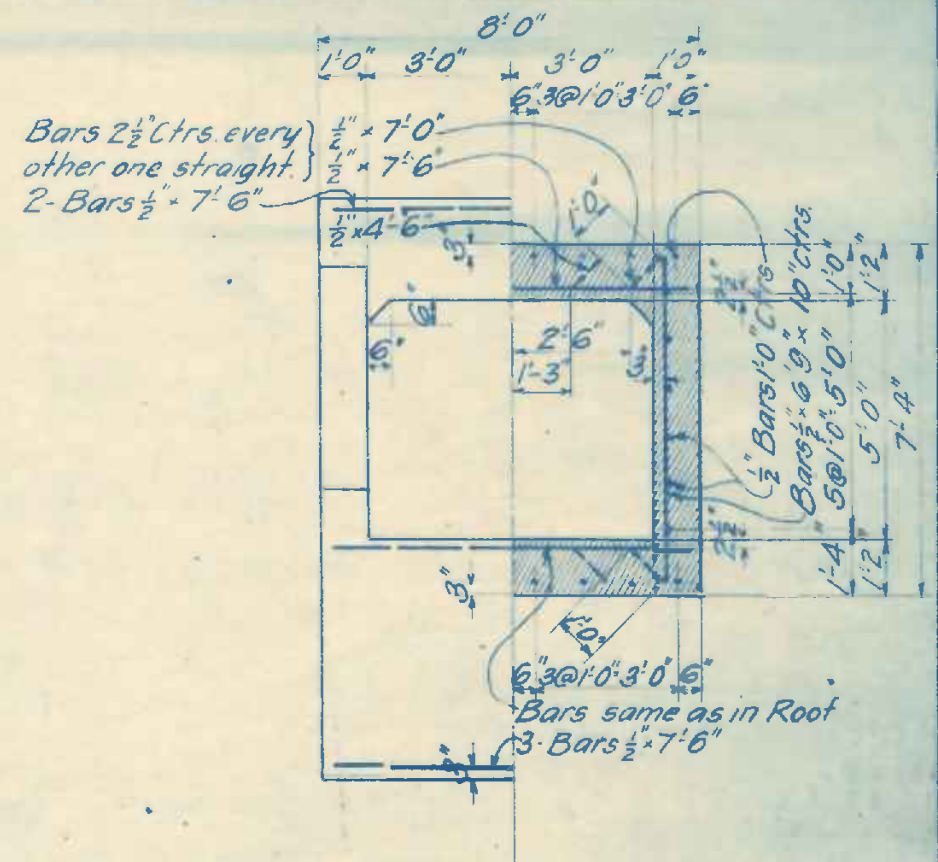 8'-0"
1'-0" 3'-0" 3'-0" 1'-0"
6" 3@1'-0"-3'-0" 6"
Bars 2½" Ctrs. every } ½" × 7'-0"
other one straight. } ½" × 7'-6"
2-Bars ½" × 7'-6"
½" × 4'-6"
3"
1'-0"
6"
6"
2'-6"
1'-3"
3"
2½"
½" Bars 1'-0" Ctrs
Bars ½" × 6'-9" × 10" Ctrs.
1'-0"
5@1'-0"-5'-0"
1'-4"
1'-2"
5'-0"
1'-2"
7'-4"
2½"
3"
1'-0"
6" 3@1'-0"-3'-0" 6"
Bars same as in Roof
3-Bars ½" × 7'-6"
3"